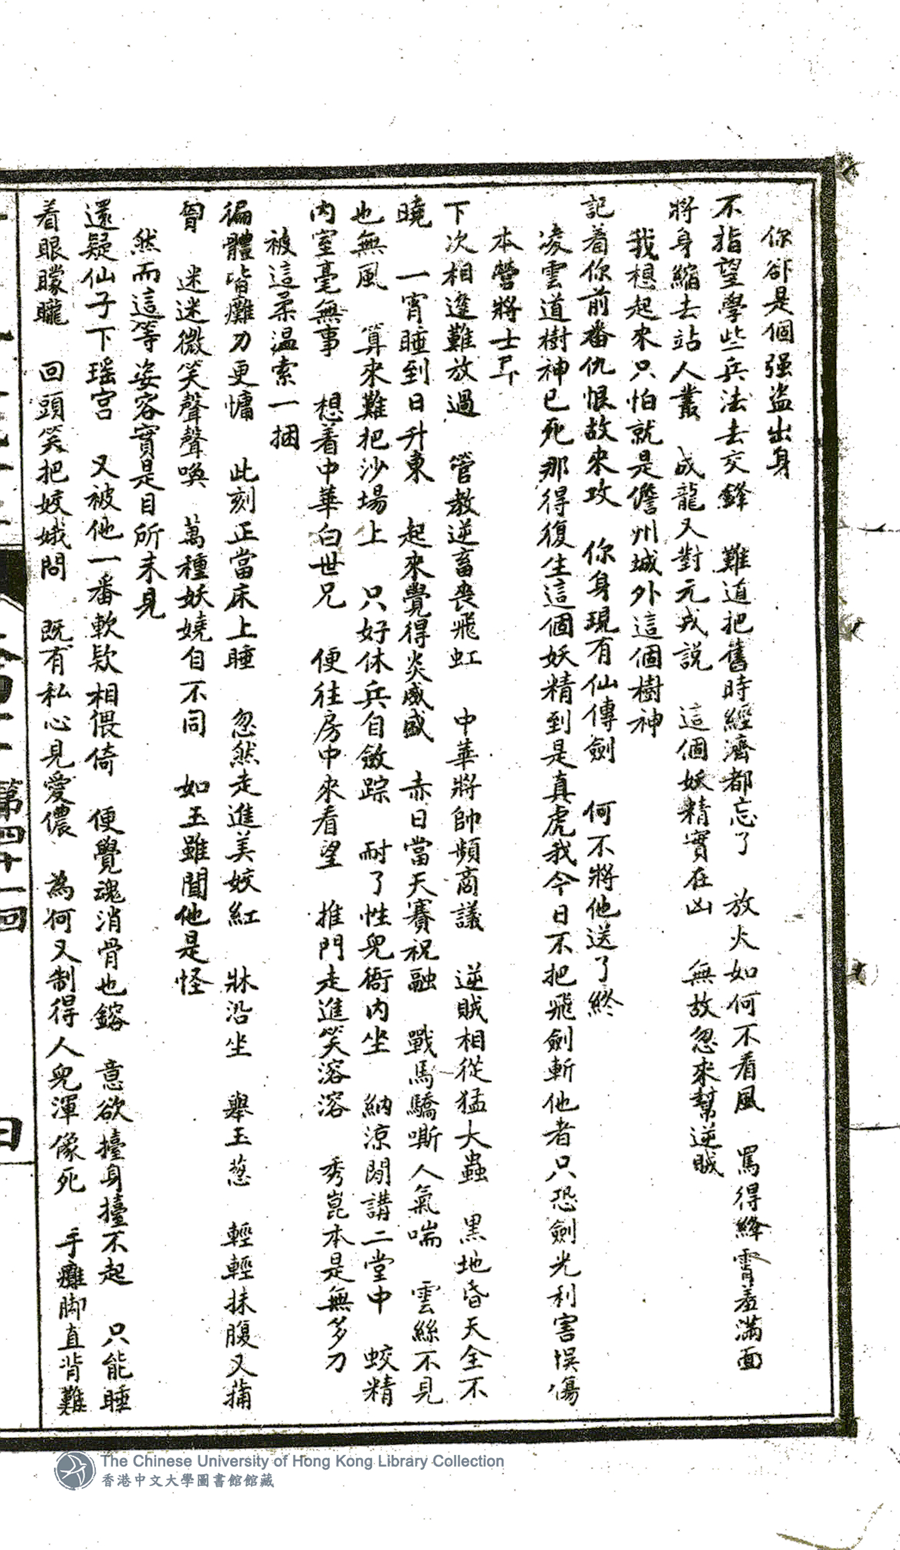 你卻是個强盗出身
不指望學些兵法去交鋒 難道把舊時經濟都忘了 放火如何不看風 罵得絳霄羞滿面
將身縮去站人叢 成龍又對元戎說 這個妖精實在凶 無故忽來幫逆賊
我想起來只怕就是儋州城外這個樹神
記着你前番仇恨故來攻 你身現有仙傳劍 何不將他送了終
凌雲道樹神已死那得復生這個妖精到是真虎我今日不把飛劍斬他者只恐劍光利害悞傷
本營將士
下次相逢難放過 管教逆畜喪飛虹 中華將帥頻商議 逆賊相從猛大蟲 黑地昏天全不
曉 一宵睡到日升東 起來覺得炎威盛 赤日當天賽祝融 戰馬驕嘶人氣喘 雲絲不見
也無風 算來難把沙場上 只好休兵自斂踪 耐了性兒衙内坐 納涼閒講二堂中 蛟精
内室毫無事 想着中華白世兄 便往房中來看望 推門走進笑溶溶 秀崑本是無多力
被這柔温索一捆
徧體皆癱力更慵 此刻正當床上睡 忽然走進美姣紅 牀沿坐 舉玉葱 輕輕抹腹又蒲
胷 迷迷微笑聲聲喚 萬種妖嬈自不同 如玉雖聞他是怪
然而這等姿容實是目所未見
還疑仙子下瑶宫 又被他一番軟欵相偎倚 便覺魂消骨也鎔 意欲擡身擡不起 只能睡
着眼矇矓 回頭笑把姣娥問 既有私心見愛儂 為何又制得人兒渾像死 手癱脚直背難
第四十一回
The Chinese University of Hong Kong Library Collection
香港中文大學圖書館館藏